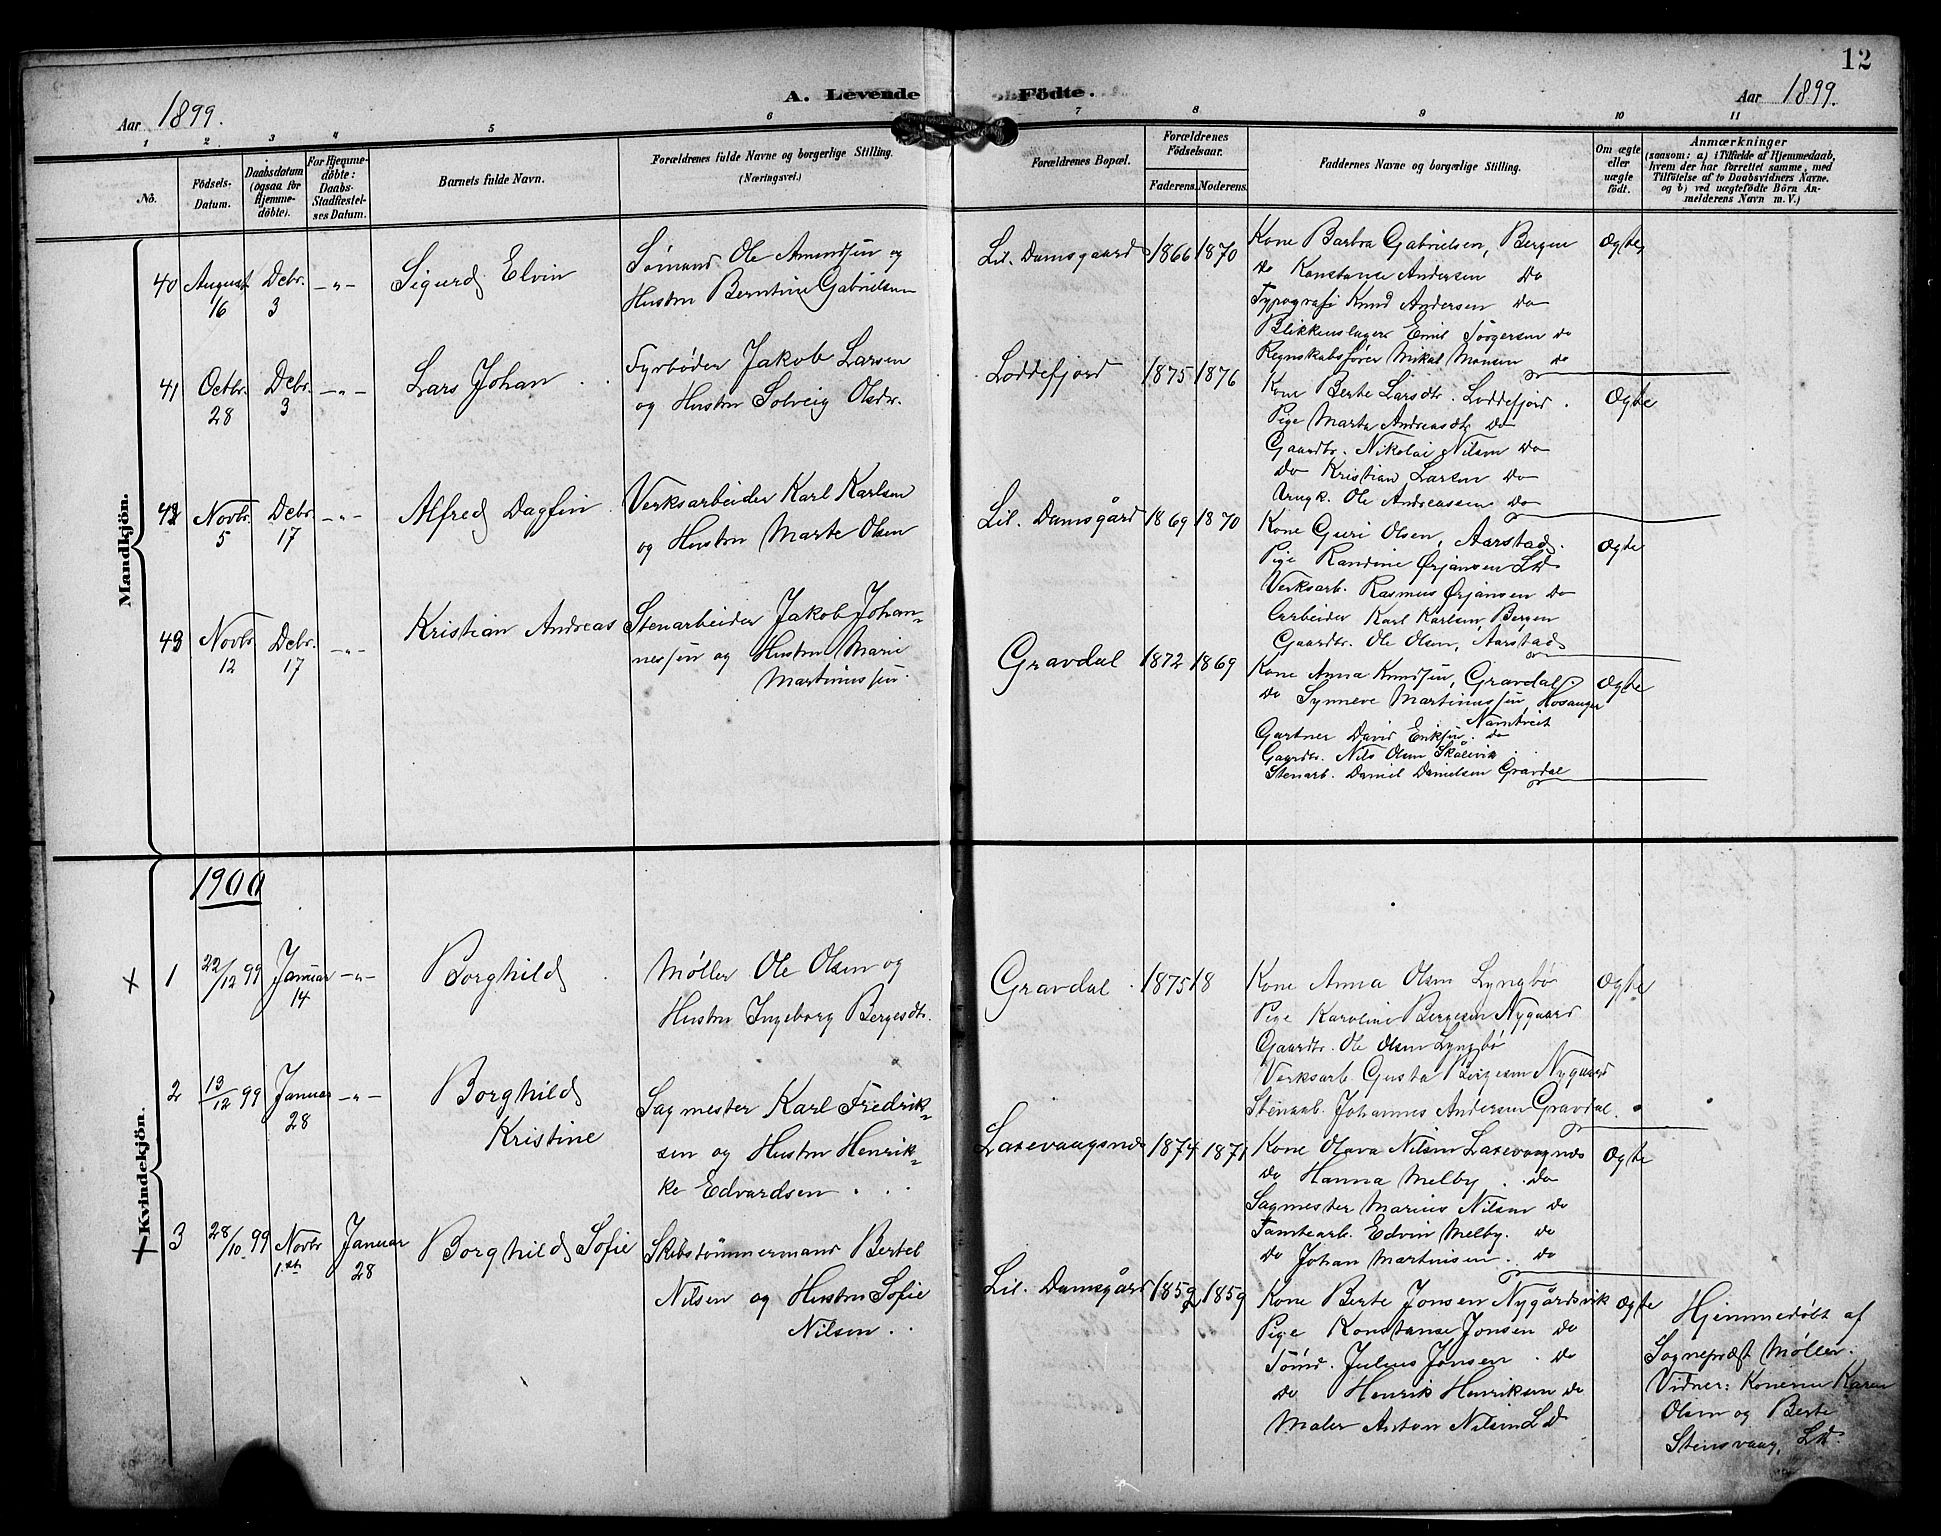 12
A. Levende Födte.
Aar 1899.
Aar 1899.
1 2 3 4 5 6 7 8 9 10 11
No.
Födsels-Datum.
Daabsdatum (ogsaa for Hjemme-döbte).
For Hjemme-döbte: Daabs-Stadfæstel-ses Datum.
Barnets fulde Navn.
Forældrenes fulde Navne og borgerlige Stilling.
(Næringsvei.)
Forældrenes Bopæl.
Forældrenes Födselsaar.
Faderens. Moderens.
Faddernes Navne og borgerlige Stilling.
Om ægte eller uægte födt.
Anmærkninger
(saasom: a) i Tilfælde af Hjemmedaab,
hvem der har forrettet samme, med
Tilföielse af to Daabsvidners Navne.
og b) ved uægtefödte Börn An-
melderens Navn m. V.)
Mandkjön.
40 August 16 Debr. 3 -"- Sigurd Elvin
Sømand Ole Amundsen og
Hustru Berntine Gabrielsen
Lil. Damsgaard 1866 1870
Kone Barbra Gabrielsen, Bergen
do Konstance Andersen do
Typograf Knud Andersen do
Blikkenslager Emil Törgersen do
Regnskabsfører Mikal Monsen do
Ægte
41 Octbr. 28 Debr. 3 -"- Lars Johan
Fyrbøder Jakob Larsen
og Hustru Solveig Olsdr.
Loddefjord 1875 1876
Kone Berte Larsdtr. Loddefjord.
Pige Marta Andreasdtr do
Gaardbr. Nikolai Nilsen do
do Kristian Larsen do
Ungk. Ole Andreassen do
Ægte
42 Novbr. 5 Debr. 17 -"- Alfred Dagfin
Verksarbeider Karl Karlsen
og Hustru Marte Olsen
Lil. Damsgård 1869 1870
Kone Guri Olsen, Aarstad.
Pige Randine Ørjansen Ld
Verksarb. Rasmus Ørjansen do
Arbeider Karl Karlsen, Bergen
Gaardbr. Ole Olsen, Aarstad
Ægte
43 Novbr. 12 Debr. 17 -"- Kristian Andreas
Stenarbeider Jakob Johan-
nessen og Hustru Marie
Martinussen.
Gravdal 1872 1869
Kone Anna Knudsen, Gravdal.
do Synneve Martinussen, Hosanger
Gartner David Eriksen. Namtveit do
Gaardbr. Nils Olsen Skålevik
Stenarb. Daniel Danielsen Gravdal
Ægte
1900
Kvindekjön.
+ 1 22/12 99 Januar 14 -"- Borghild
Møller Ole Olsen og
Hustru Ingeborg Bergesdtr.
Gravdal. 1875 18
Kone Anna Olsen Lyngbø
Pige Karoline Bergesen Nygaard
Gaardbr. Ole Olsen Lyngbø
Verksarb. Gusta Bergesen Nygaard
Stenarb. Johannes Andersen Gravdal.
Ægte
2 13/12 99 Januar 28 -"- Borghild
Kristine
Sagmester Karl Fredrik-
sen og Hustru Henrik-
ke Edvardsen.
Laxevaagsnæs 1874 1871
Kone Olava Nilsen Laxevaagnæs
do Hanna Melby. do
Sagmester Marius Nilsen do
Tomtearb. Edvin Melby. do
do Johan Martinsen. do
Ægte
+ 3 28/10 99 Novbr 1.ste Januar 28 Borghild Sofie
Skibstömmermand Bertel
Nilsen og Hustru Sofie
Nilsen.
Lil. Damsgård 1852 1859
Kone Berte Jonsen Nygårdsvik
Pige Konstanse Jonsen do
Tömd. Julius Jonsen. do
do Henrik Henriksen do
Maler Anton Nilsen Ld
Ægte
Hjemmedøbt af
Sognepræst Møller.
Vidner: Konerne Karen
Olsen og Berte
Stensvaag, Ld.